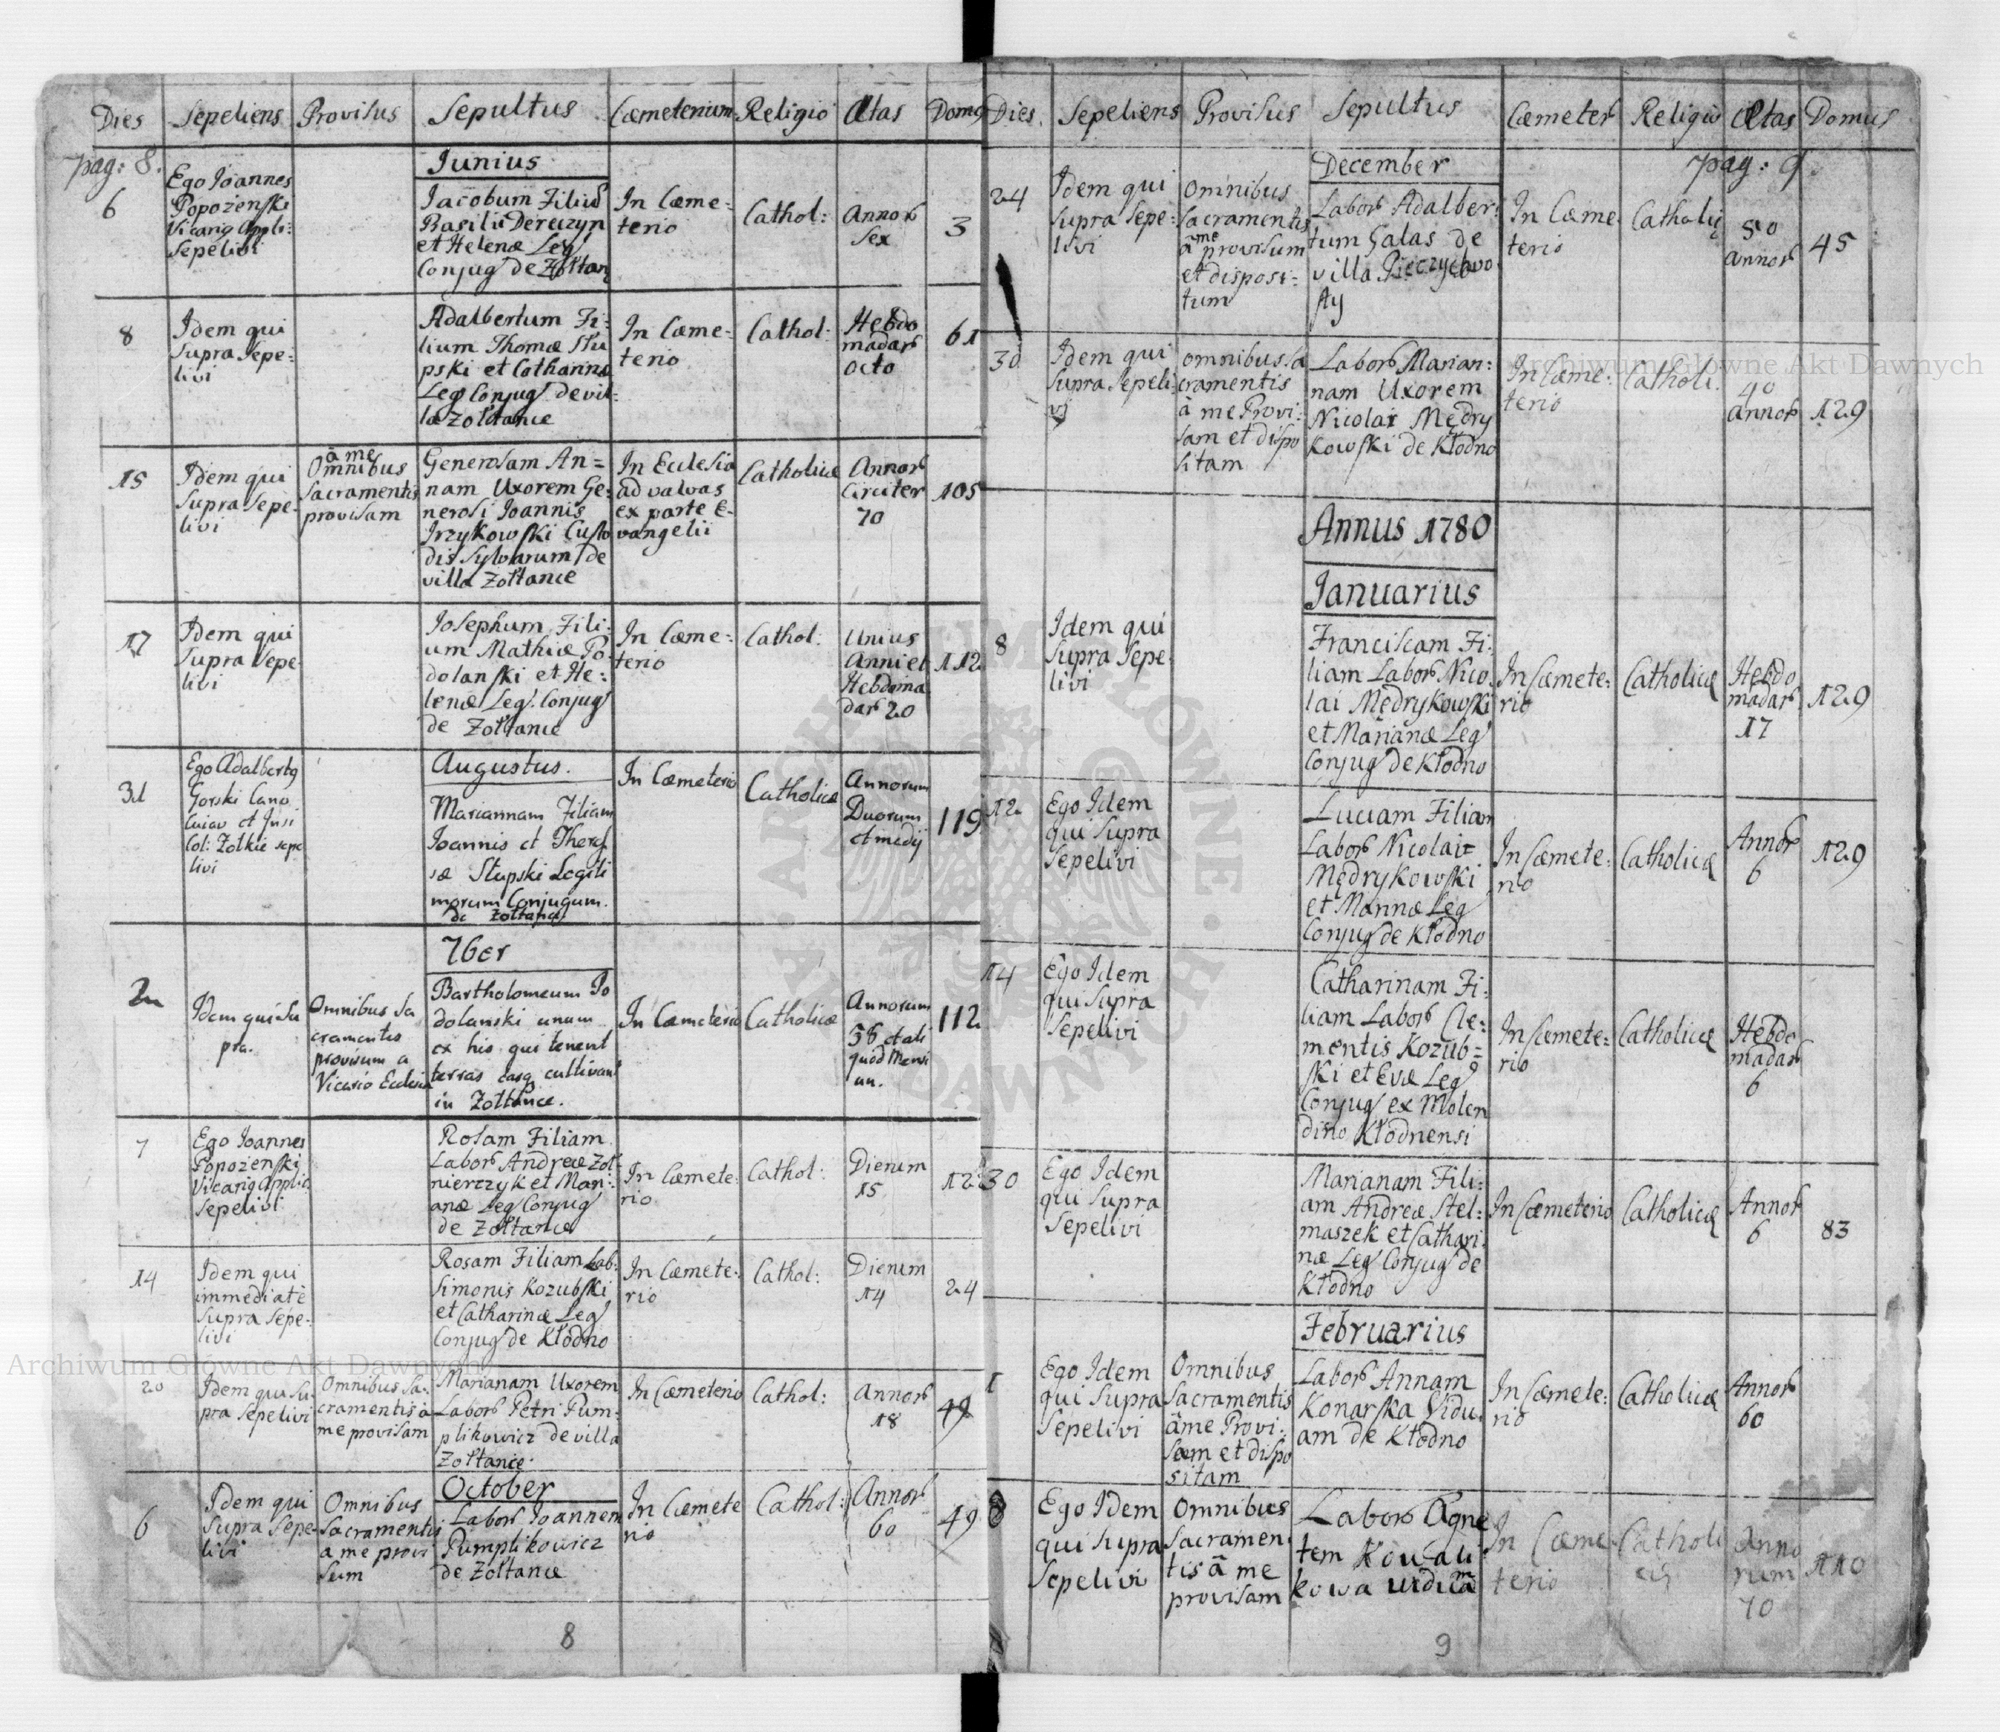 Dies Sepeliens Provisus Sepultus Cæmeterium Religio Ætas Domq
pag: 8.
Junius
6
Ego Joannes
Popożenski
Vicariq Appli:
Sepelivi
Jacobum Filiū
Basilii Dereczyn
et Helenæ Leg
Conjug de Żołtan
In Cæme-
terio
Cathol:
Annor
Sex
3
8
Idem qui
Supra Sepe-
livi
Adalbertum Fi-
lium Thomæ Stu
pski et Catharinæ
Leg Conjug de vil-
læ Zołtance
In Cæme-
terio
Cathol:
Hebdo
madar
octo
61
15
Idem qui
Supra Sepe-
livi
à me
Omnibus
Sacramentis
provisam
Generosam An=
nam Uxorem Ge:
nerosi Joannis
Jrzykowski Custo
dis Sylvarum de
villa Zołtance
In Ecclesia
ad valvas
ex parte E-
vangelii
Catholicæ
Annor
Circiter
70
105
17
Idem qui
Supra Sepe-
livi
Josephum Fili:
um Mathiæ Po-
dolanski et He-
lenæ Leg. Conjug
de Zołtance
In Cæme-
terio
Cathol:
Unius
Anni et
Hebdoma
dar 20
112
Augustus.
31
Ego Adalbertq
Gorski Cano
Col: Zołkie sepe
livi
Mariannam Filiam
Joannis et There
sæ Stupski Legiti
morum Conjugum.
de Zołtance
In Cæmeterio
Catholicæ
Annorum
Duorum
et medij
119
7ber
2
Idem qui Su
pra.
Omnibus Sa
cramentis
provisum a
Vicario Ecclesiæ
Bartholomeum Po
dolanski unum
ex his qui tenent
terras easq cultivant
in Zołtance.
In Cæmeterio
Catholicæ
Annorum
56 et ali
quod Mensi
um.
112
7
Ego Joannes
Popożenski
Vicariq Applic
Sepelivi
Rosam Filiam
Labor Andreæ Żoł-
nierczyk et Mari-
anæ Leg Conjug
de Zołtance
In Cæmete-
rio
Cathol:
Dierum
15
12
14
Idem qui
immediatè
Supra Sepe-
livi
Rosam Filiam Lab:
Simonis Kozubski
et Catharinæ Leg
Conjug de Kłodno
In Cæmete-
rio
Cathol:
Dierum
14
24
20
Idem qui Su-
pra Sepelivi
Omnibus Sa-
cramentis à
me provisam
Marianam Uxorem
Labor Petri Pum-
plikowicz de villa
Zołtance.
In Cæmeterio
Cathol:
Annor
18
49
October
6
Idem qui
Supra Sepe-
livi
Omnibus
Sacramentis
a me provi
sum
Labor Joannem
Pumplikowicz
de Zołtance
In Cæmete
rio
Cathol:
Annor
60
49
8
Dies. Sepeliens Provisus Sepultus Cæmeter Religio Ætas Domus
pag: 9
December
24
Idem qui
Supra Sepe-
livi
Omnibus
Sacramentis
à me provisum
et disposi-
tum
Labor Adalber-
tum Galas de
villa Pieczychwo
sty
In Cæme-
terio
Catholiç
50
annor
45
30
Idem qui
Supra Sepeli-
vi
omnibus sa
cramentis
à me Provi-
sam et dispo
sitam
Labor Marian-
nam Uxorem
Nicolai Mędry
kowski de Kłodno
In Cæme-
terio
Catholi.
40
annor
129
Annus 1780
Januarius
8
Idem qui
Supra Sepe-
livi
Franciscam Fi-
liam Labor Nico-
lai Mędrykowski
et Marianæ Leg
Conjug de Kłodno
In Cæmete-
rio
Catholicæ
Hebdo
madar
17
129
12
Ego Idem
qui Supra
Sepelivi
Luciam Filiam
Labor Nicolai
Mędrykowski
et Mannæ Leg
Conjug de Kłodno
In Cæmete-
rio
Catholicæ
Annor
6
129
14
Ego Idem
qui Supra
Sepelivi
Catharinam Fi-
liam Labor Cle-
mentis Kozub=
ski et Evæ Leg
Conjug ex Molen
dino Kłodnensi
In Cæmete-
rio
Catholicæ
Hebdo
madar
6
30
Ego Idem
qui Supra
Sepelivi
Marianam Fili-
am Andreæ Stel-
maszek et Cathari-
næ Leg Conjug de
Kłodno
In Cæmeterio
Catholicæ
Annor
6
83
Februarius
1
Ego Idem
qui Supra
Sepelivi
Omnibus
Sacramentis
à me Provi-
sam et dispo
sitam
Labor Annam
Konarska Vidu-
am de Kłodno
In Cæmete-
rio
Catholicæ
Annor
60
8
Ego Idem
qui Supra
Sepelivi
Omnibus
Sacramen-
tis à me
provisam
Labor Agne
tem Kowali
kowa
In Cæme-
terio
Catholi
cæ
Anno
rum
70
110
9
Archiwum Główne Akt Dawnych
Archiwum Główne Akt Dawnych